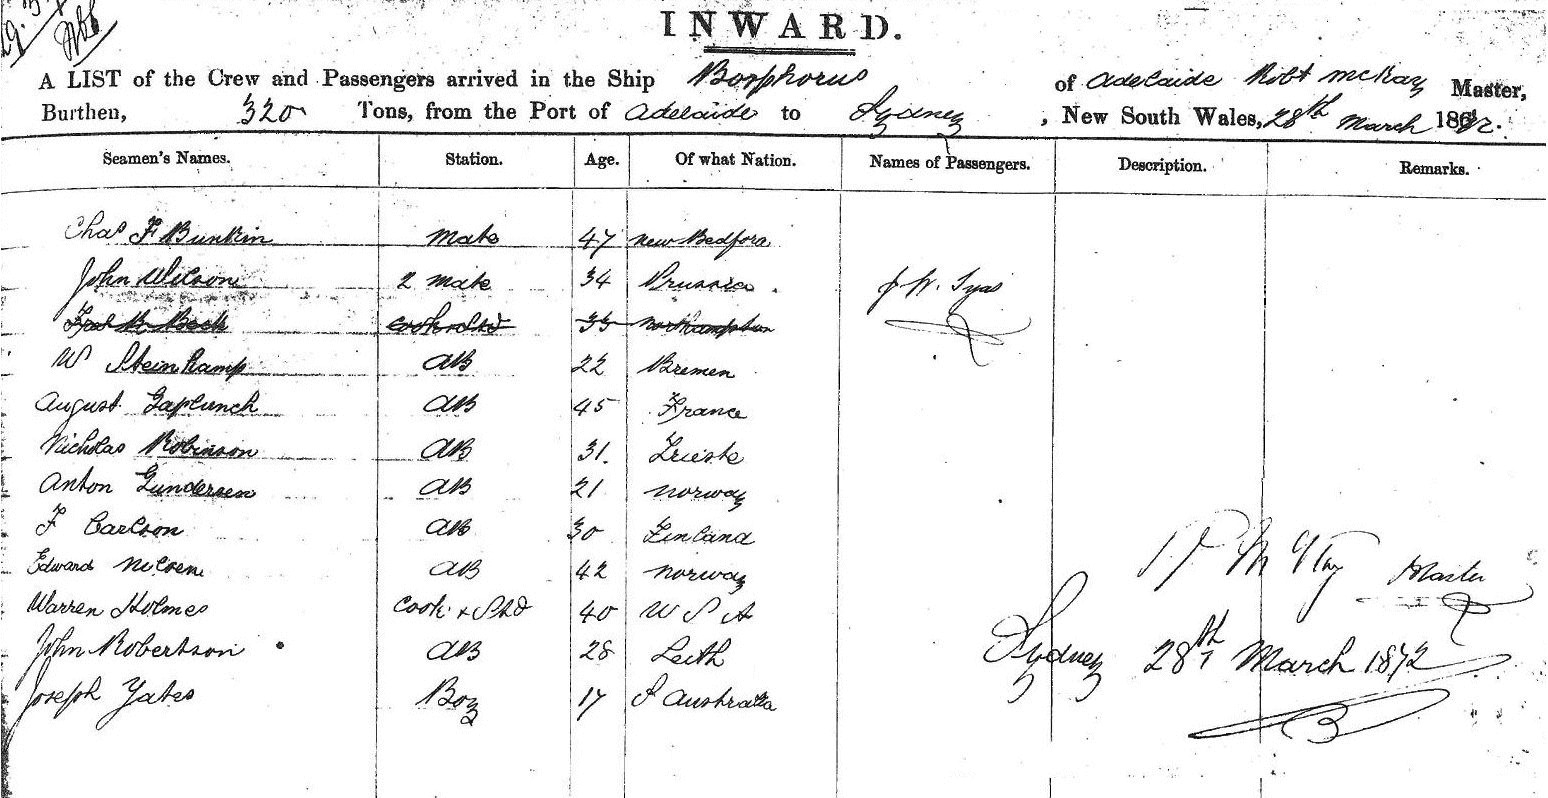 INWARD.
A LIST of the Crew and Passengers arrived in the Ship Bosphorus of Adelaide Robt McKay Master,
Burthen, 320 Tons, from the Port of Adelaide to Sydney, New South Wales, 28th March 1872.
Seamen's Names. Station. Age. Of what Nation. Names of Passengers. Description. Remarks.
Chas F Bunkin Mate 47 New Bedford
John Wilson 2 Mate 34 Prussia. J W. Tyas
Fred B Beck Cook & Std 33 Northampton
W Steinkamp AB 22 Bremen
August Gaplunch AB 45 France
Nicholas Robinson AB 31. Trieste
Anton Gundersen AB 21 Norway
F Carlson AB 30 Finland
Edward Nilsen AB 42 Norway Master
Warren Holmes Cook & Std 40 U S A
John Robertson AB 28 Leith Sydney 28th March 1872
Joseph Yates Boy 17 S Australia